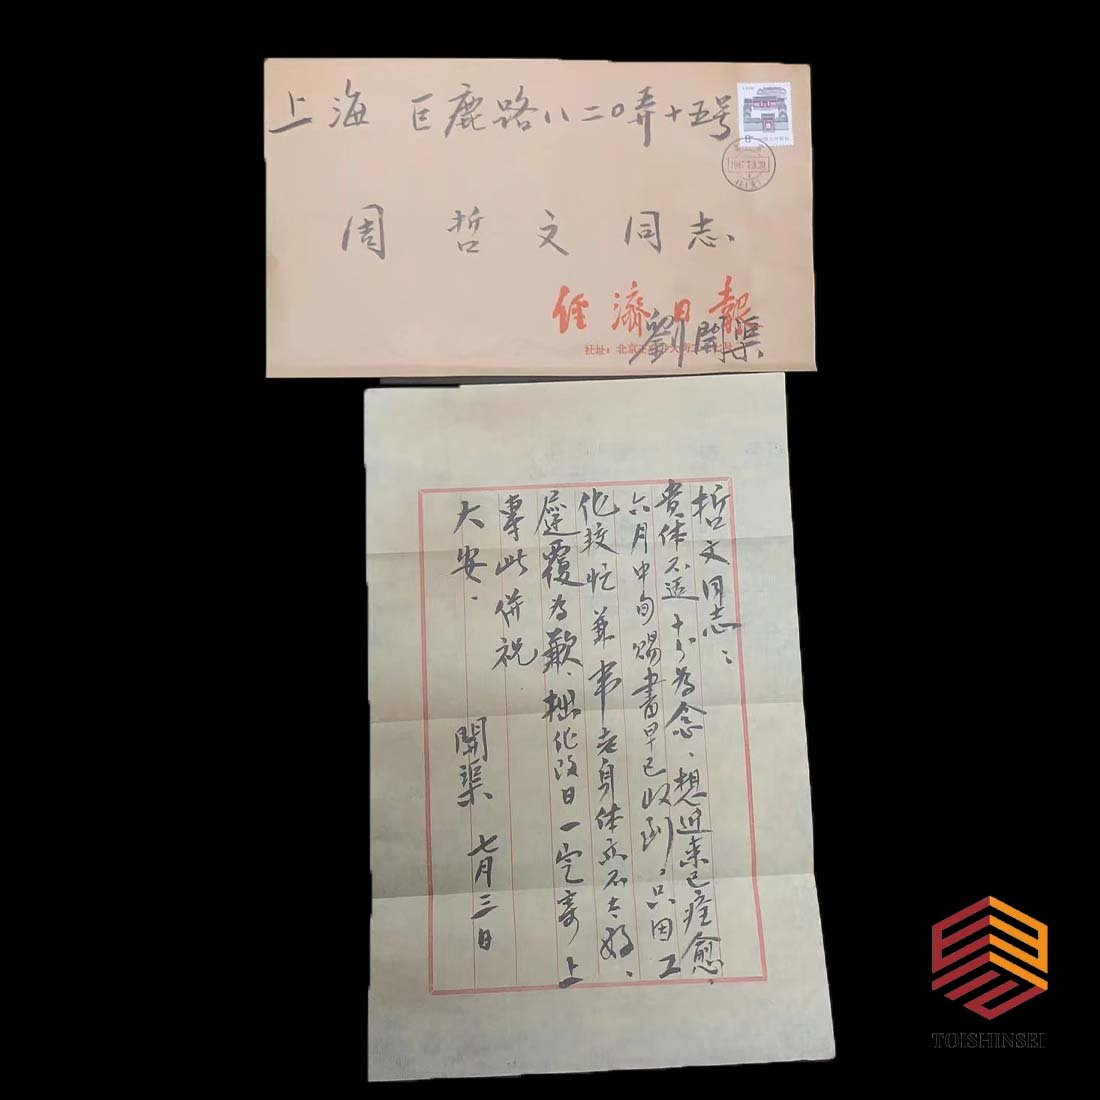 上海 巨鹿路八二〇弄十五号
8
1987.7.3.20
周哲文同志
經濟日報
社址：北京王
劉開渠
哲文同志：
贵体不适十分為念、想近来已痊愈、
六月中旬賜書早已收到，只因工
作较忙兼
老身体亦不太好、
遲覆為歉、拙作改日一定寄上
專此併祝
大安．
開渠 七月三日
TOISHINSEI